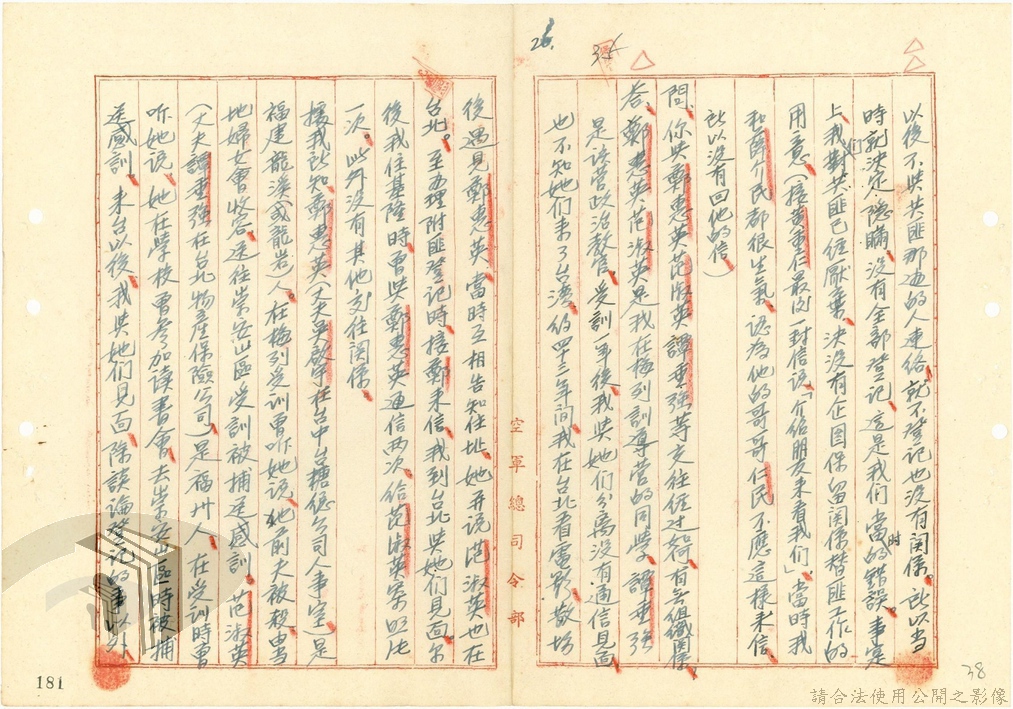 26.
以後不與共匪那边的人連絡,就不登記也沒有関係。所以当
時就決定隐瞞,沒有全部登記,這是我们当时的錯誤,事实
上,我们對共匪已經厭棄,決沒有企图保留関係替匪工作的
用意(接黃重仁最后一封信说「介紹朋友来看我们」,當時我
和薛介民都很生氣,認為他的哥哥仁民不應這樣来信,
所以沒有回他的信)
問、你與鄭惠英、范淑英、譚重强等交往经过怎样?有無組織関係
答、鄭惠英、范淑英是我在梅列訓導营的同學、譚重强
是该营政治教官,受訓一年後,我與她们分离没有通信見面
也不知她们来了台湾,约四十三年間,我在台北看電影,散场
後遇見鄭惠英,當時互相告知住址,她并说范淑英也在
台北。至办理附匪登记時,接鄭来信,我到台北與她们見面,尔
後我住基隆時,曾與鄭惠英通信两次,给范淑英寄照片
一次。此外没有其他交往関係。
據我所知,鄭惠英(丈夫吳啟宇在台中台糖總公司人事室)是
福建龍溪(或龍岩)人。在梅列受訓曾听她说,她前夫被殺,由
地婦女會收容,送往崇安山區受訓被捕送感訓,范淑英
(丈夫譚重强在台北物產保險公司)是福州人,在受訓時曾
听她说,她在學校曾参加读書會,去崇安山區時被捕
送感訓。来台以後,我與她们見面,除談論登记的事以外
空軍總司令部
181
38
請合法使用公開之影像